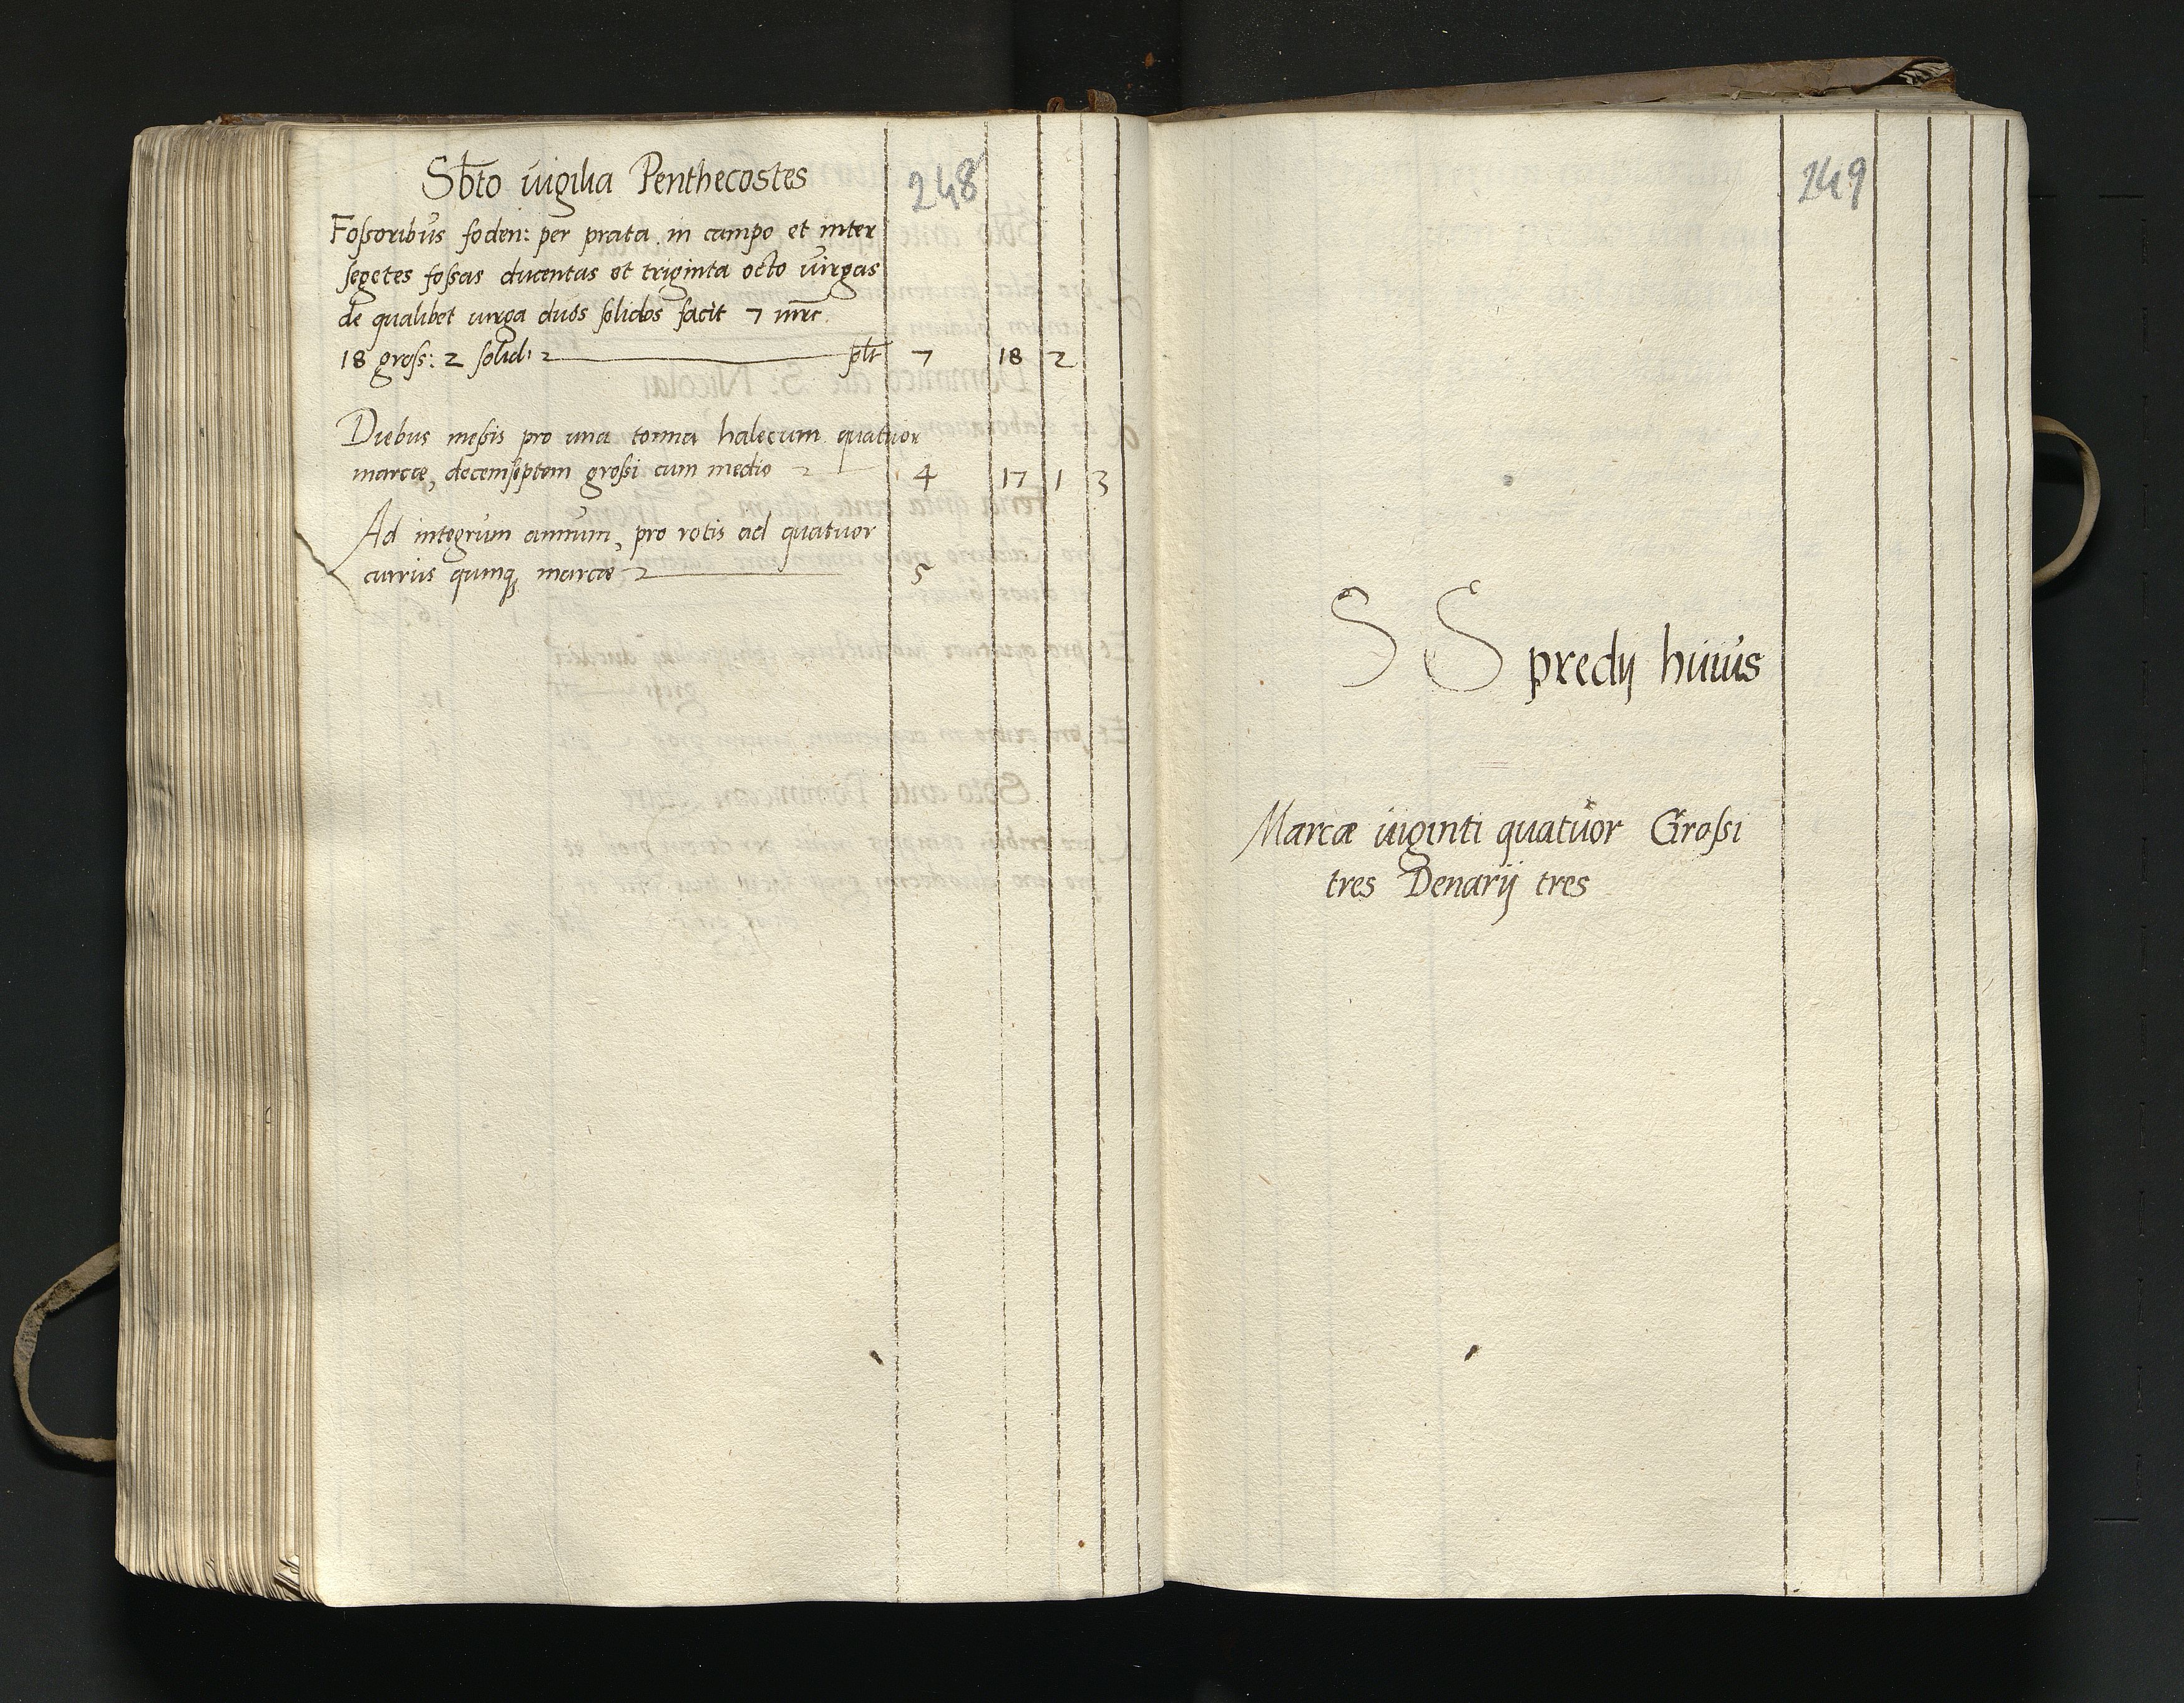 Sbto vigilia Penthecostes 248
Foßoribus foden: per prata in campo et inter
segetes foßas ducentas et triginta octo virgas
de qualibet virga duos solidos facit 7 mrc
18 gross: 2 solid: 7 18 2
Diebus meßis pro una tonna halecum quatuor
marcæ, decemseptem großi cum medio 4 17 1 3
Ad integrum annum, pro rotis ad quatuor
currus quinq marcæ 5
249
S S predij huius
Marcæ viginti quatuor Großi
tres Denarij tres